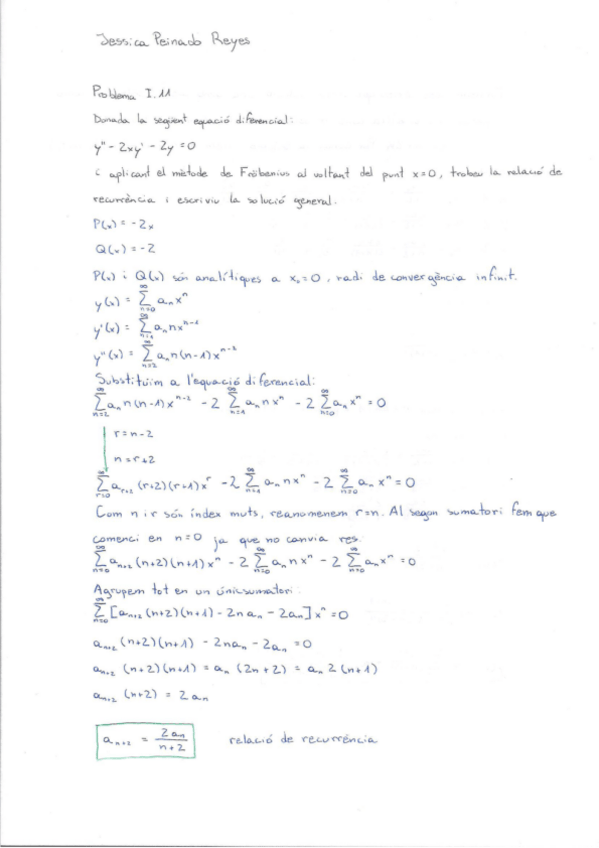 Jessica Peinado Reyes
Problema I.11
Donada la següent equació diferencial:
y'' - 2xy' - 2y = 0
i aplicant el mètode de Fröbenius al voltant del punt x=0, trobeu la relació de
recurrència i escriviu la solució general.
P(x) = -2x
Q(x) = -2
P(x) i Q(x) són analítiques a x₀=0, radi de convergència infinit.
y(x) = ∑_{n=0}^{∞} aₙxⁿ
y'(x) = ∑_{n=1}^{∞} aₙnxⁿ⁻¹
y''(x) = ∑_{n=2}^{∞} aₙn(n-1)xⁿ⁻²
Substituïm a l'equació diferencial:
∑_{n=2}^{∞} aₙn(n-1)xⁿ⁻² - 2 ∑_{n=1}^{∞} aₙnxⁿ - 2 ∑_{n=0}^{∞} aₙxⁿ = 0
r = n-2
n = r+2
∑_{r=0}^{∞} aᵣ₊₂(r+2)(r+1)xʳ - 2 ∑_{n=1}^{∞} aₙnxⁿ - 2 ∑_{n=0}^{∞} aₙxⁿ = 0
Com n i r són índex muts, reanomenem r=n. Al segon sumatori fem que
comenci en n=0 ja que no canvia res:
∑_{n=0}^{∞} aₙ₊₂(n+2)(n+1)xⁿ - 2 ∑_{n=0}^{∞} aₙnxⁿ - 2 ∑_{n=0}^{∞} aₙxⁿ = 0
Agrupem tot en un únic sumatori:
∑_{n=0}^{∞} [aₙ₊₂(n+2)(n+1) - 2naₙ - 2aₙ]xⁿ = 0
aₙ₊₂(n+2)(n+1) - 2naₙ - 2aₙ = 0
aₙ₊₂(n+2)(n+1) = aₙ(2n+2) = aₙ2(n+1)
aₙ₊₂(n+2) = 2aₙ
aₙ₊₂ = 2aₙ/(n+2) relació de recurrència